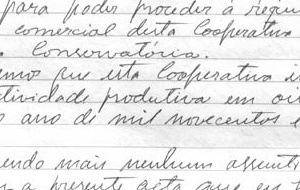 para poder proceder à
comercial desta Cooperativa
Conservatória.
que esta Cooperativa i
tividade produtiva em
ano de mil novecentos e
endo mais nenhum assunto
a presente acta que